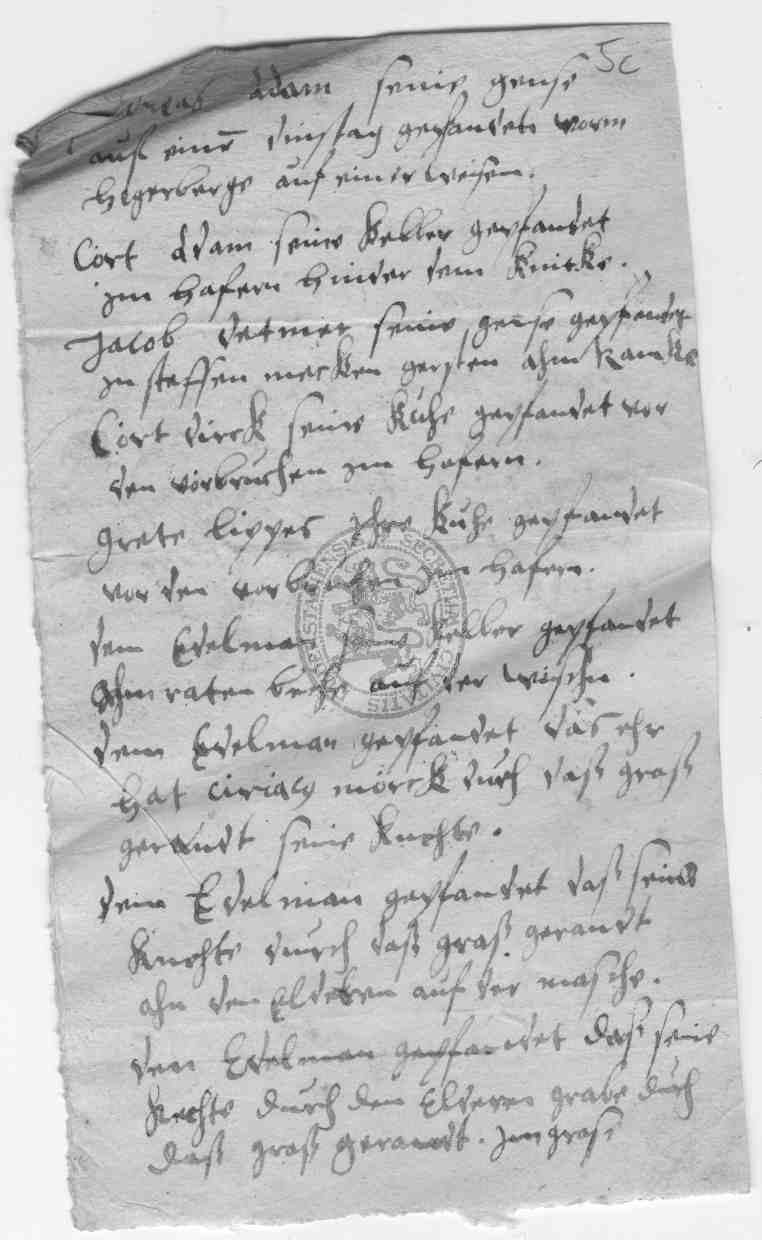 5c
Adam seine gense
auf einen dinstag gepfandet vorm
Hegerberge auf einer weisen.
Cort Adam seine Keller gepfandet
im hafern hinder dem Knicke.
Jacob detmer seine gense gepfandet
in steffen mecken gersten ahm Kamke
Cort dirck seine Kuhe gepfandet vor
den vorbruchen im hafern.
Grete lippes ihre Kuhe gepfandet
vor den vorbruchen im hafern.
dem Edelman seine Keller gepfandet
Ahm raten beke auf der wischn.
dem Edelman gepfandet das ehr
hat ciriacy mörck durch daß graß
gerandt seine Knechte.
dem Edelman gepfandet daß seine
Knechte durch daß graß gerandt
ahn den Elderen auf der masche.
dem Edelman gepfandet daß seine
Kechte durch den Elderen grabe durch
daß graß gerandt. im graß